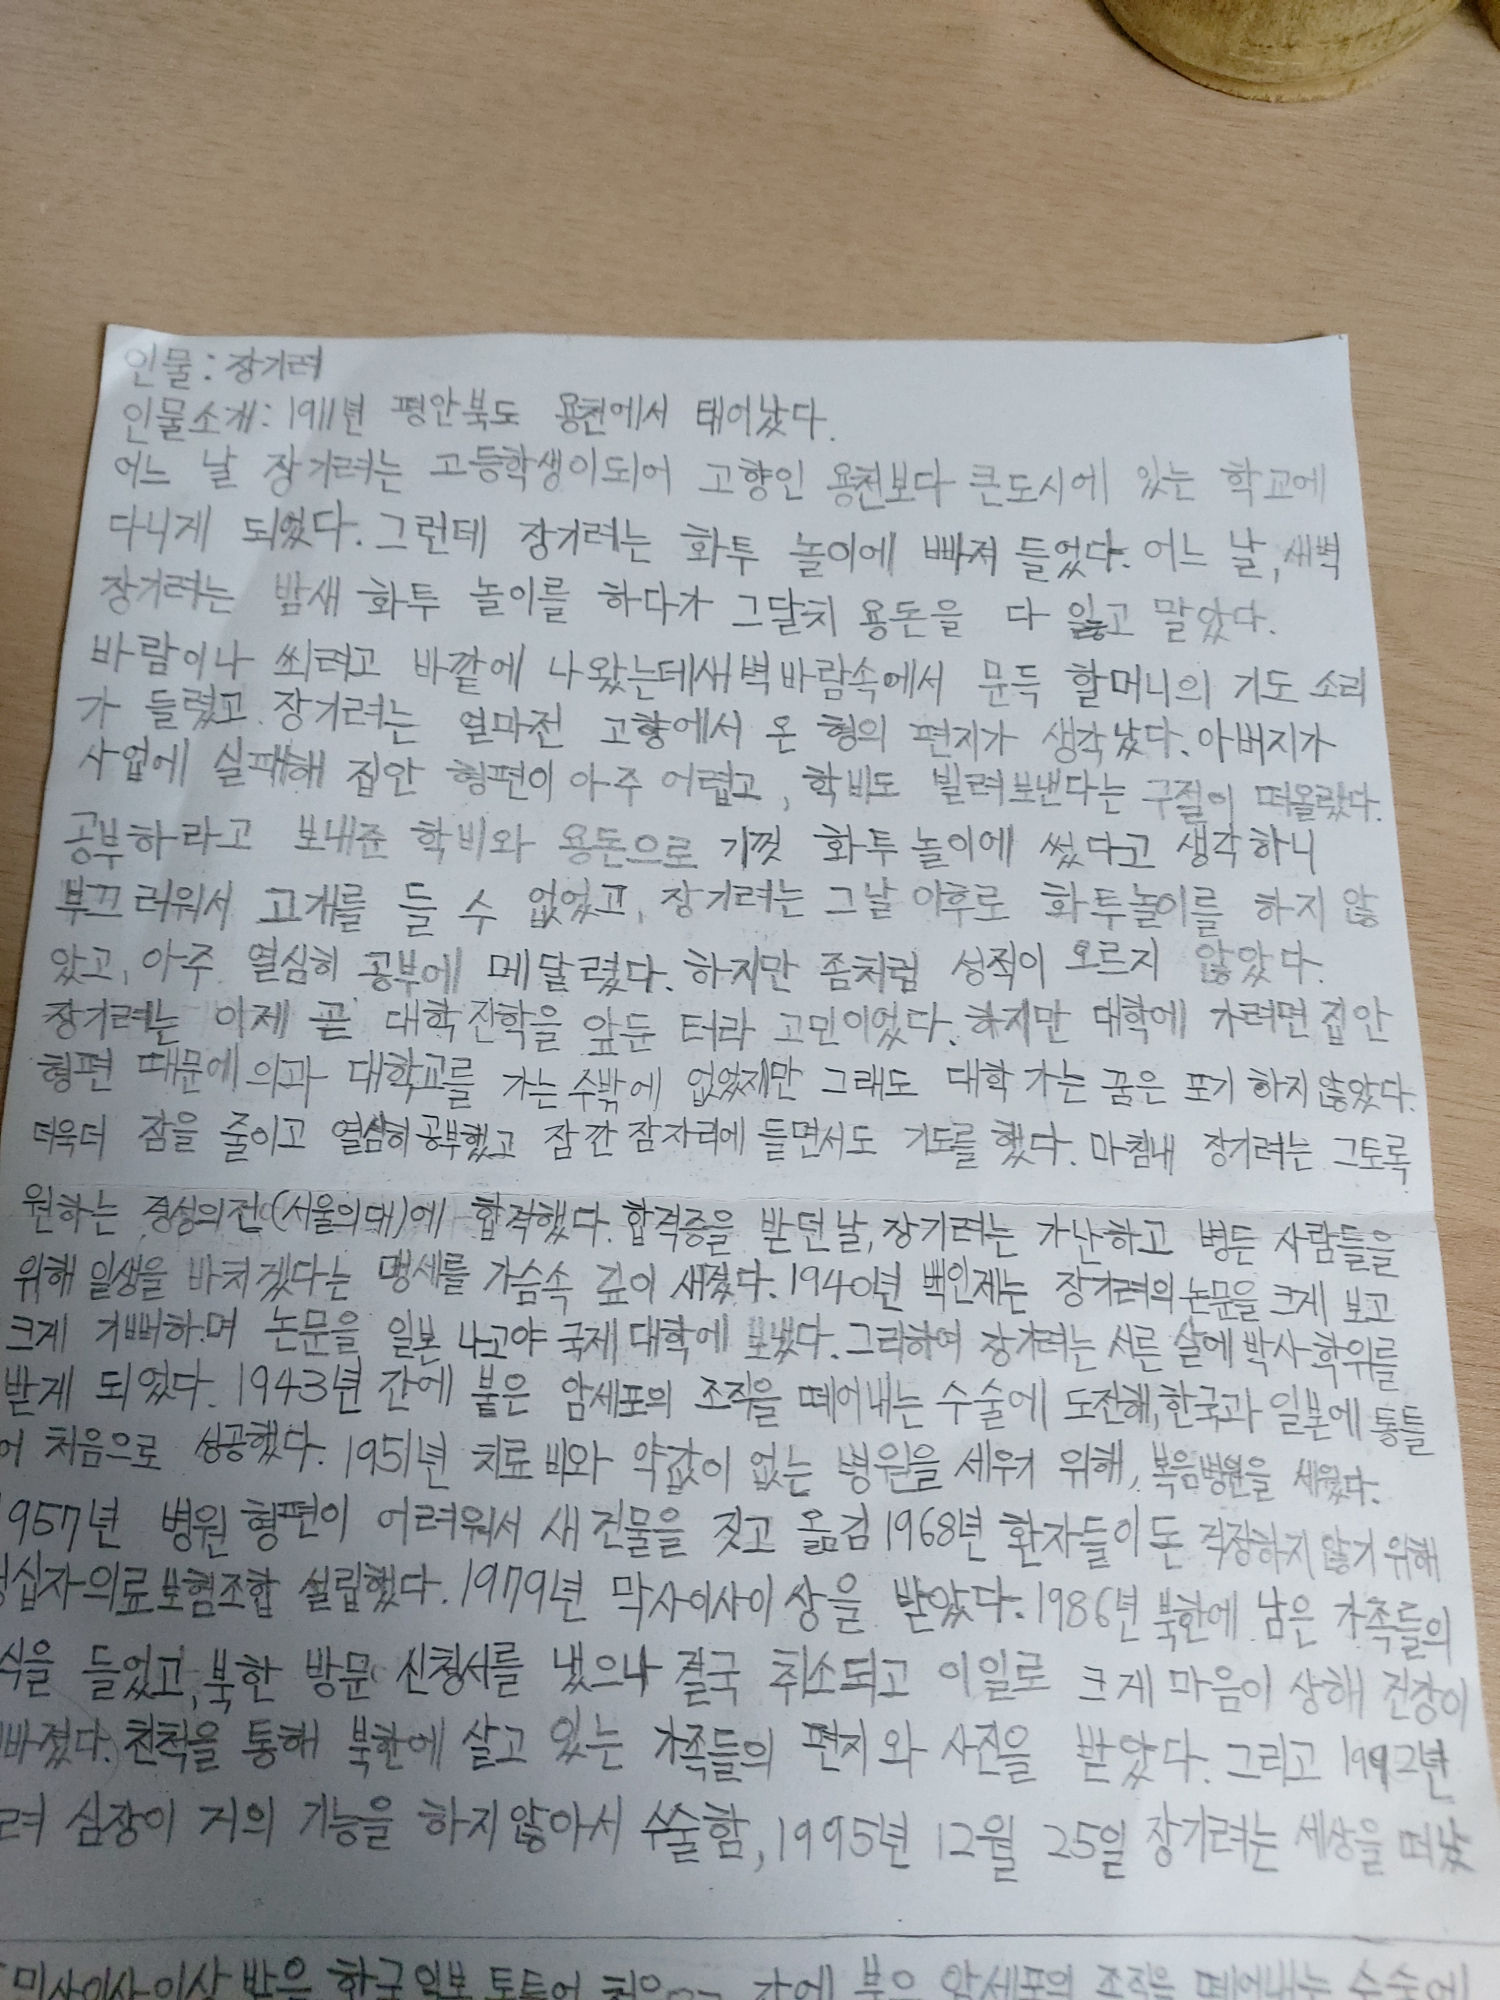 인물 : 장기려
인물소개 : 1911년 평안북도 용천에서 태어났다.
어느 날 장기려는 고등학생이되어 고향인 용천보다 큰도시에 있는 학교에
다니게 되었다. 그런데 장기려는 화투 놀이에 빠져 들었다. 어느 날, 새벽
장기려는 밤새 화투 놀이를 하다가 그달치 용돈을 다 잃고 말았다.
바람이나 쐬려고 바깥에 나왔는데새벽바람속에서 문득 할머니의 기도 소리
가 들렸고 장기려는 얼마전 고향에서 온 형의 편지가 생각났다. 아버지가
사업에 실패해 집안 형편이 아주 어렵고, 학비도 빌려보낸다는 구절이 떠올랐다.
공부하라고 보내준 학비와 용돈으로 기껏 화투놀이에 썼다고 생각하니
부끄러워서 고개를 들 수 없었고, 장기려는 그날 이후로 화투놀이를 하지 않
았고, 아주 열심히 공부에 메달렸다. 하지만 좀처럼 성적이 오르지 않았다.
장기려는 이제 곧 대학진학을 앞둔 터라 고민이었다. 하지만 대학에 가려면 집안
형편 때문에 의과 대학교를 가는수밖에 없었지만 그래도 대학 가는 꿈은 포기하지않았다.
더욱더 잠을 줄이고 열심히공부했고 잠깐 잠자리에 들면서도 기도를 했다. 마침내 장기려는 그토록
원하는 경성의전(서울의대)에 합격했다. 합격증을 받던날, 장기려는 가난하고 병든 사람들을
위해 일생을 바치겠다는 맹세를 가슴속 깊이 새겼다. 1940년 백인제는 장기려의논문을 크게 보고
크게 기뻐하며 논문을 일본 나고야 국제대학에 보냈다. 그리하여 장기려는 서른 살에 박사학위를
받게 되었다. 1943년 간에 붙은 암세포의 조직을 떼어내는 수술에 도전해, 한국과 일본에 통틀
어 처음으로 성공했다. 1951년 치료비와 약값이 없는 병원을 세우기 위해, 복음병원을 세웠다.
1957년 병원 형편이 어려워서 새 건물을 짓고 옮김 1968년 환자들이 돈 걱정하지 않기 위해
십자의료보험조합 설립했다. 1979년 막사이사이상을 받았다. 1986년 북한에 남은 가족들의
식을 들었고, 북한 방문 신청서를 냈으나 결국 취소되고 이일로 크게 마음이 상해 건강이
빠졌다. 친척을 통해 북한에 살고 있는 가족들의 편지와 사진을 받았다. 그리고 1992년
려 심장이 거의 기능을 하지않아서 수술함, 1995년 12월 25일 장기려는 세상을 떠났
막사이사이상 받은 한국 일본 통틀어 간에 붙은 암세포의 조직을 떼어내는 수술에